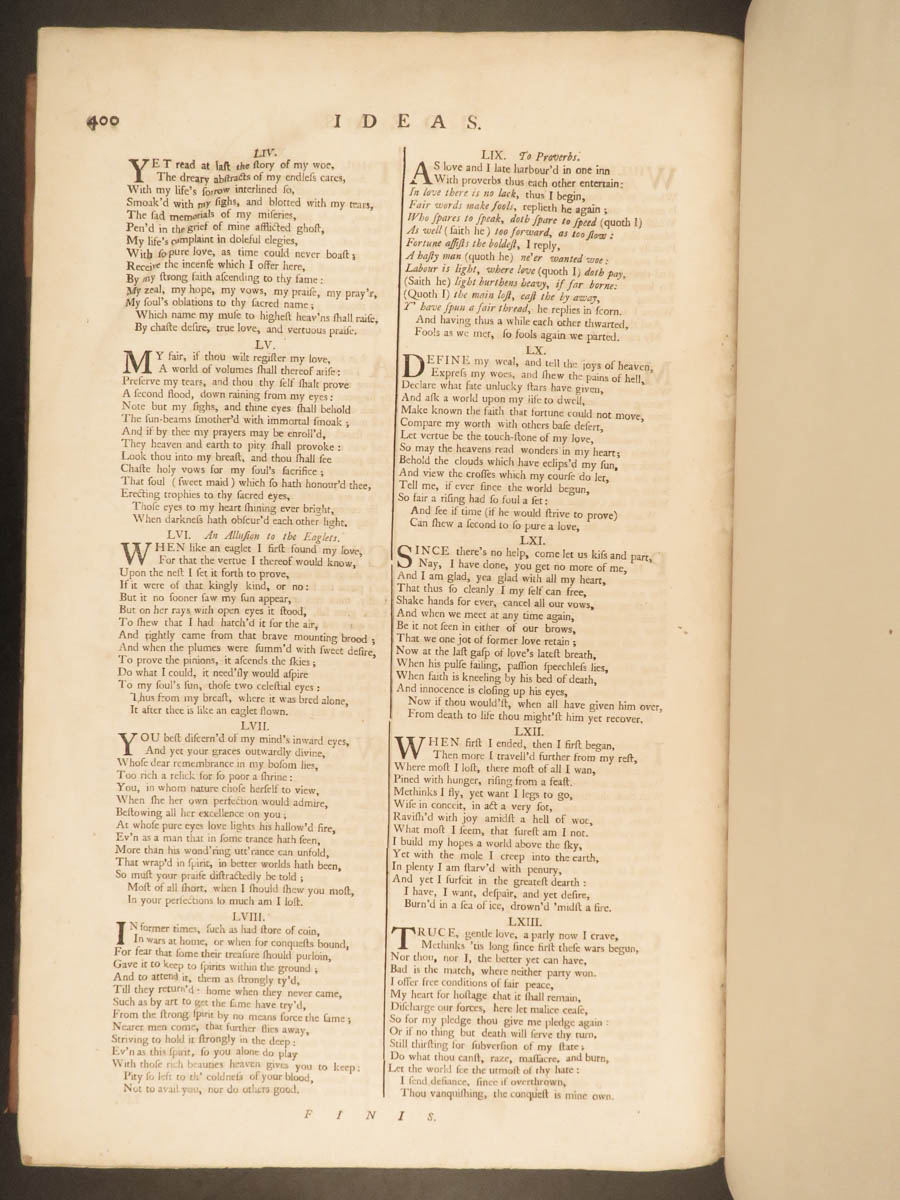 400
IDEAS.
LIV.
YET read at laſt the ſtory of my woe,
The dreary abſtracts of my endleſs cares,
With my life's ſorrow interlined ſo,
Smoak'd with my ſighs, and blotted with my tears,
The ſad memorials of my miſeries,
Pen'd in the grief of mine afflicted ghoſt,
My life's complaint in doleful elegies,
With ſo pure love, as time could never boaſt;
Receive the incenſe which I offer here,
By my ſtrong faith aſcending to thy fame:
My zeal, my hope, my vows, my praiſe, my pray'r,
My ſoul's oblations to thy ſacred name;
Which name my muſe to higheſt heav'ns ſhall raiſe,
By chaſte deſire, true love, and vertuous praiſe.
LV.
MY fair, if thou wilt regiſter my love,
A world of volumes ſhall thereof ariſe:
Preſerve my tears, and thou thy ſelf ſhalt prove
A ſecond flood, down raining from my eyes:
Note but my ſighs, and thine eyes ſhall behold
The ſun-beams ſmother'd with immortal ſmoak;
And if by thee my prayers may be enroll'd,
They heaven and earth to pity ſhall provoke:
Look thou into my breaſt, and thou ſhall ſee
Chaſte holy vows for my ſoul's ſacrifice;
That ſoul (ſweet maid) which ſo hath honour'd thee,
Erecting trophies to thy ſacred eyes,
Thoſe eyes to my heart ſhining ever bright,
When darkneſs hath obſcur'd each other light.
LVI. An Alluſion to the Eaglets.
WHEN like an eaglet I firſt found my love,
For that the vertue I thereof would know,
Upon the neſt I ſet it forth to prove,
If it were of that kingly kind, or no:
But it no ſooner ſaw my ſun appear,
But on her rays with open eyes it ſtood,
To ſhew that I had hatch'd it for the air,
And rightly came from that brave mounting brood;
And when the plumes were ſumm'd with ſweet deſire,
To prove the pinions, it aſcends the ſkies;
Do what I could, it need'ſly would aſpire
To my ſoul's ſun, thoſe two celeſtial eyes:
Thus from my breaſt, where it was bred alone,
It after thee is like an eaglet flown.
LVII.
YOU beſt diſcern'd of my mind's inward eyes,
And yet your graces outwardly divine,
Whoſe dear remembrance in my boſom lies,
Too rich a relick for ſo poor a ſhrine:
You, in whom nature choſe herſelf to view,
When ſhe her own perfection would admire,
Beſtowing all her excellence on you;
At whoſe pure eyes love lights his hallow'd fire,
Ev'n as a man that in ſome trance hath ſeen,
More than his wond'ring utt'rance can unfold,
That wrap'd in ſpirit, in better worlds hath been,
So muſt your praiſe diſtractedly be told;
Moſt of all ſhort, when I ſhould ſhew you moſt,
In your perfections ſo much am I loſt.
LVIII.
IN former times, ſuch as had ſtore of coin,
In wars at home, or when for conqueſts bound,
For fear that ſome their treaſure ſhould purloin,
Gave it to keep to ſpirits within the ground;
And to attend it, them as ſtrongly ty'd,
Till they return'd: home when they never came,
Such as by art to get the ſame have try'd,
From the ſtrong ſpirit by no means force the ſame;
Nearer men come, that further flies away,
Striving to hold it ſtrongly in the deep:
Ev'n as this ſpirit, ſo you alone do play
With thoſe rich beauties heaven gives you to keep:
Pity ſo left to th' coldneſs of your blood,
Not to avail you, nor do others good.
LIX. To Proverbs.
AS love and I late harbour'd in one inn
With proverbs thus each other entertain:
In love there is no lack, thus I begin,
Fair words make fools, replieth he again;
Who ſpares to ſpeak, doth ſpare to ſpeed (quoth I)
As well (ſaith he) too forward, as too ſlow:
Fortune aſſiſts the boldeſt, I reply,
A haſty man (quoth he) ne'er wanted woe:
Labour is light, where love (quoth I) doth pay,
(Saith he) light burthens heavy, if far borne:
(Quoth I) the main loſt, caſt the by away,
Y' have ſpun a fair thread, he replies in ſcorn.
And having thus a while each other thwarted,
Fools as we met, ſo fools again we parted.
LX.
DEFINE my weal, and tell the joys of heaven,
Expreſs my woes, and ſhew the pains of hell,
Declare what fate unlucky ſtars have given,
And aſk a world upon my life to dwell,
Make known the faith that fortune could not move,
Compare my worth with others baſe deſert,
Let vertue be the touch-ſtone of my love,
So may the heavens read wonders in my heart;
Behold the clouds which have eclips'd my ſun,
And view the croſſes which my courſe do let,
Tell me, if ever ſince the world begun,
So fair a riſing had ſo foul a ſet:
And ſee if time (if he would ſtrive to prove)
Can ſhew a ſecond to ſo pure a love,
LXI.
SINCE there's no help, come let us kiſs and part,
Nay, I have done, you get no more of me,
And I am glad, yea glad with all my heart,
That thus ſo cleanly I my ſelf can free,
Shake hands for ever, cancel all our vows,
And when we meet at any time again,
Be it not ſeen in either of our brows,
That we one jot of former love retain;
Now at the laſt gaſp of love's lateſt breath,
When his pulſe failing, paſſion ſpeechleſs lies,
When faith is kneeling by his bed of death,
And innocence is cloſing up his eyes,
Now if thou would'ſt, when all have given him over,
From death to life thou might'ſt him yet recover.
LXII.
WHEN firſt I ended, then I firſt began,
Then more I travell'd further from my reſt,
Where moſt I loſt, there moſt of all I wan,
Pined with hunger, riſing from a feaſt.
Methinks I fly, yet want I legs to go,
Wiſe in conceit, in act a very ſot,
Raviſh'd with joy amidſt a hell of woe,
What moſt I ſeem, that ſureſt am I not.
I build my hopes a world above the ſky,
Yet with the mole I creep into the earth,
In plenty I am ſtarv'd with penury,
And yet I ſurfeit in the greateſt dearth:
I have, I want, deſpair, and yet deſire,
Burn'd in a ſea of ice, drown'd 'midſt a fire.
LXIII.
TRUCE, gentle love, a parly now I crave,
Methinks 'tis long ſince firſt theſe wars begun,
Nor thou, nor I, the better yet can have,
Bad is the match, where neither party won.
I offer free conditions of fair peace,
My heart for hoſtage that it ſhall remain,
Diſcharge our forces, here let malice ceaſe,
So for my pledge thou give me pledge again:
Or if no thing but death will ſerve thy turn,
Still thirſting for ſubverſion of my ſtate;
Do what thou canſt, raze, maſſacre, and burn,
Let the world ſee the utmoſt of thy hate:
I ſend defiance, ſince if overthrown,
Thou vanquiſhing, the conqueſt is mine own.
FINIS.